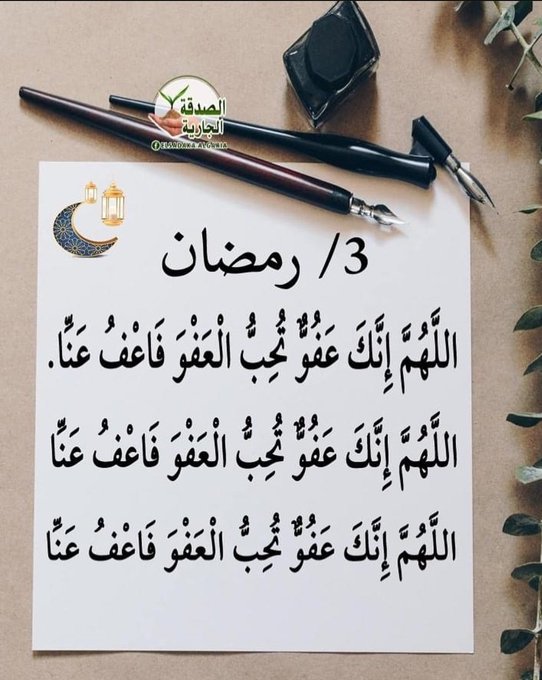 الصدقة
الجارية
ELSADAKA ALGARIA
3/ رمضان
اللَّهُمَّ إِنَّكَ عَفُوٌّ تُحِبُّ الْعَفْوَ فَاعْفُ عَنَّا.
اللَّهُمَّ إِنَّكَ عَفُوٌّ تُحِبُّ الْعَفْوَ فَاعْفُ عَنَّا
اللَّهُمَّ إِنَّكَ عَفُوٌّ تُحِبُّ الْعَفْوَ فَاعْفُ عَنَّا